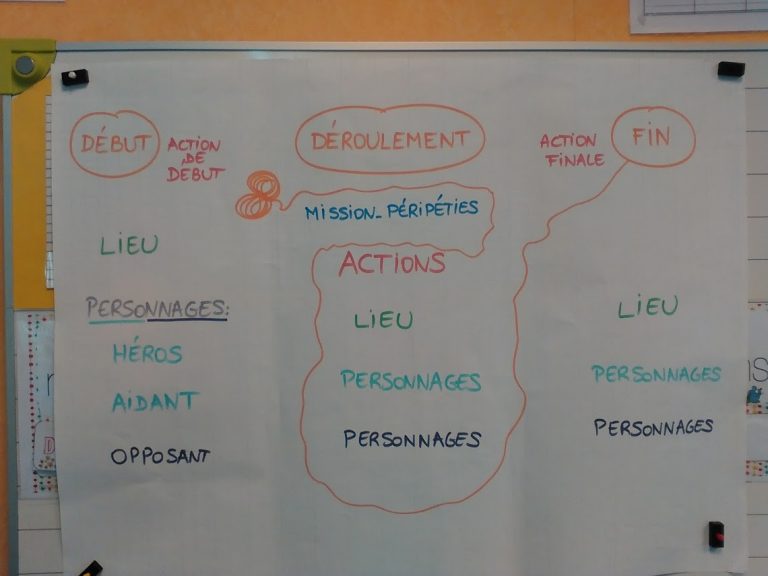 DÉBUT
ACTION
DE
DEBUT
LIEU
PERSONNAGES:
HÉROS
AIDANT
OPPOSANT
DÉROULEMENT
MISSION_PÉRIPÉTIES
ACTIONS
LIEU
PERSONNAGES
PERSONNAGES
ACTION
FINALE
FIN
LIEU
PERSONNAGES
PERSONNAGES